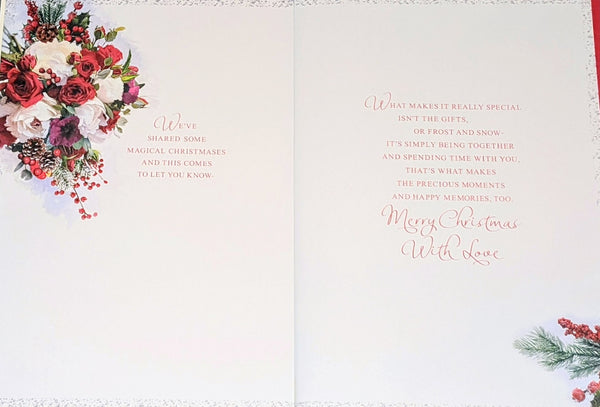 WE'VE
SHARED SOME
MAGICAL CHRISTMASES
AND THIS COMES
TO LET YOU KNOW-
WHAT MAKES IT REALLY SPECIAL
ISN'T THE GIFTS,
OR FROST AND SNOW-
IT'S SIMPLY BEING TOGETHER
AND SPENDING TIME WITH YOU,
THAT'S WHAT MAKES
THE PRECIOUS MOMENTS
AND HAPPY MEMORIES, TOO.
Merry Christmas
With Love